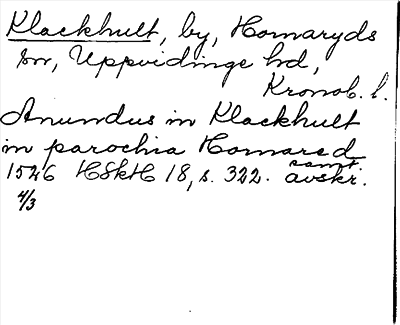 Klackhult, by, Homaryds
sn, Uppvidinge hd,
Kronob. l.
Anundus in Klackhult
in parochia Homared
1526 HSkH 18, s. 322. samt. avskr.
4/3